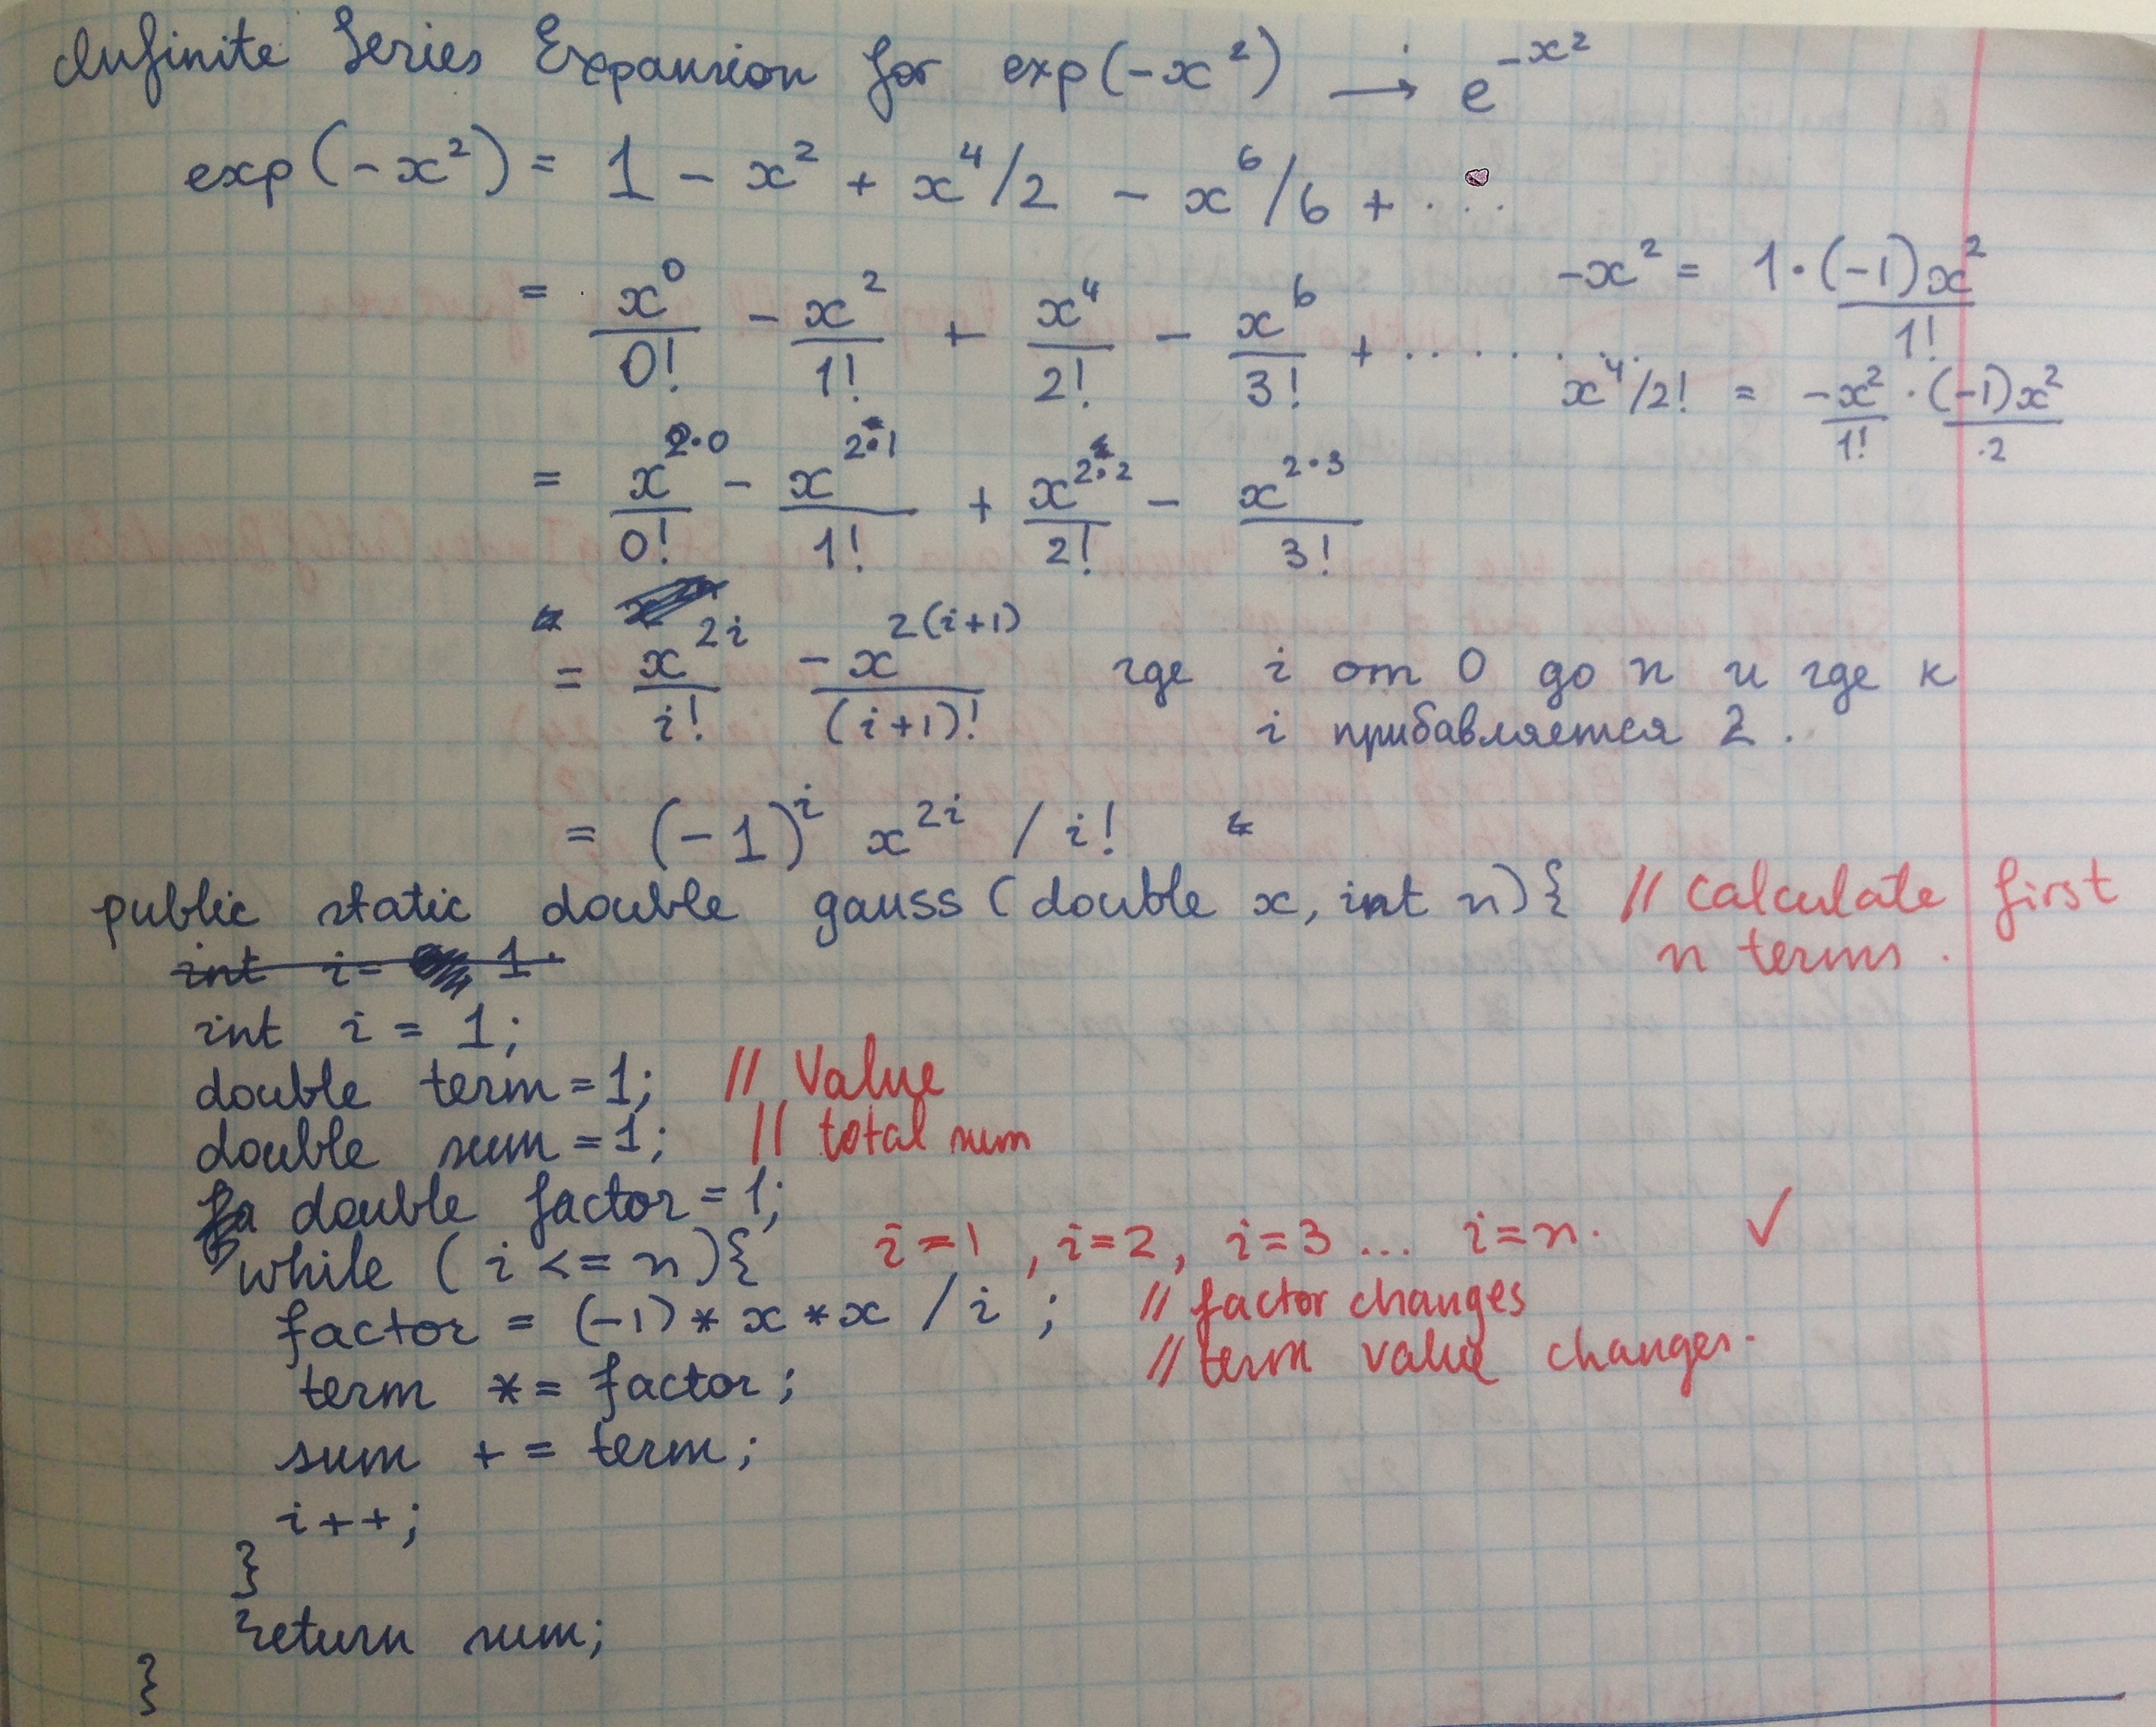 Infinite Series Expansion for exp(-x²) → e^-x²
exp(-x²) = 1 - x² + x⁴/2 - x⁶/6 + ...
= x⁰/0! - x²/1! + x⁴/2! - x⁶/3! + ........
-x² = 1·(-1)x²/1!
x⁴/2! = -x²/1! · (-1)x²/2
= x^2·0/0! - x^2·1/1! + x^2·2/2! - x^2·3/3!
= x^2i/i! -x^2(i+1)/(i+1)! где i от 0 до n и где к
i прибавляется 2.
= (-1)^i x^2i / i!
public static double gauss (double x, int n){ // Calculate first
n terms.
int i = 1;
int i = 1;
double term = 1; // Value
double sum = 1; // total sum
double factor = 1;
while ( i <= n){ i=1, i=2, i=3 ... i=n. ✓
factor = (-1) * x * x / i ; // factor changes
term *= factor; // term value changes.
sum += term;
i++;
}
return sum;
}